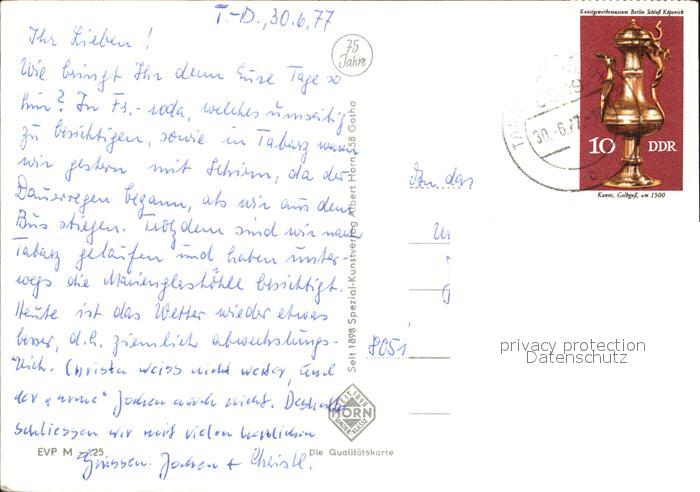 T.-D., 30.6.77
Ihr Lieben!
Wie bringt Ihr denn Eure Tage so
hin? In Fr.-roda, welches umseitig
zu besichtigen, sowie in Tabarz waren
wir gestern mit Schirm, da der
Dauerregen begann, als wir aus dem
Bus stiegen. Trotzdem sind wir nach
Tabarz gelaufen und haben unter-
wegs die Marienglashöhle besichtigt.
Heute ist das Wetter wieder etwas
besser, d.h. ziemlich abwechslungs-
reich. Christa weiss nicht weiter, und
der "arme" Jochen auch nicht. Deshalb
schliessen wir mit vielen herzlichen
Grüssen. Jochen + Christl.
75
Jahre
Seit 1898 Spezial-Kunstverlag Albert Horn 58 Gotha
SEIT 1898
HORN
SONDERKLASSE
EVP M -.25
Die Qualitätskarte
Kunstgewerbemuseum Berlin Schloß Köpenick
10 DDR
Kanne, Gelbguß, um 1500
30.-6.77
An das
8051
privacy protection
Datenschutz